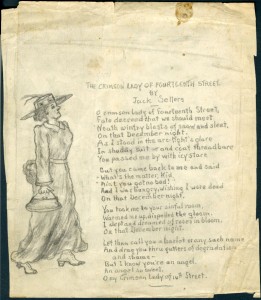 THE CRIMSON LADY OF FOURTEENTH STREET
BY
Jack Sellers
O Crimson lady of Fourteenth Street,
Fate decreed that we should meet
Neath wintry blasts of snow and sleet,
On that December night.
As I stood in the arc-light's glare
In shoddy suit or and coat threadbare
You passed me by with icy stare
But you came back to me and said
"What's the matter, Kid,
Ain't you got no bed?"
And I was hungry, wishing I were dead
On that December night.
You took me to your sinful room,
Warmed me up, dispelled the gloom,
I slept and dreamed of roses in bloom,
On that December night.
Let them call you a harlot or any such name
And drag you thru gutters of degradation
and shame-
But I know you're an angel
An angel no less,
O my Crimson Lady of 14th Street.